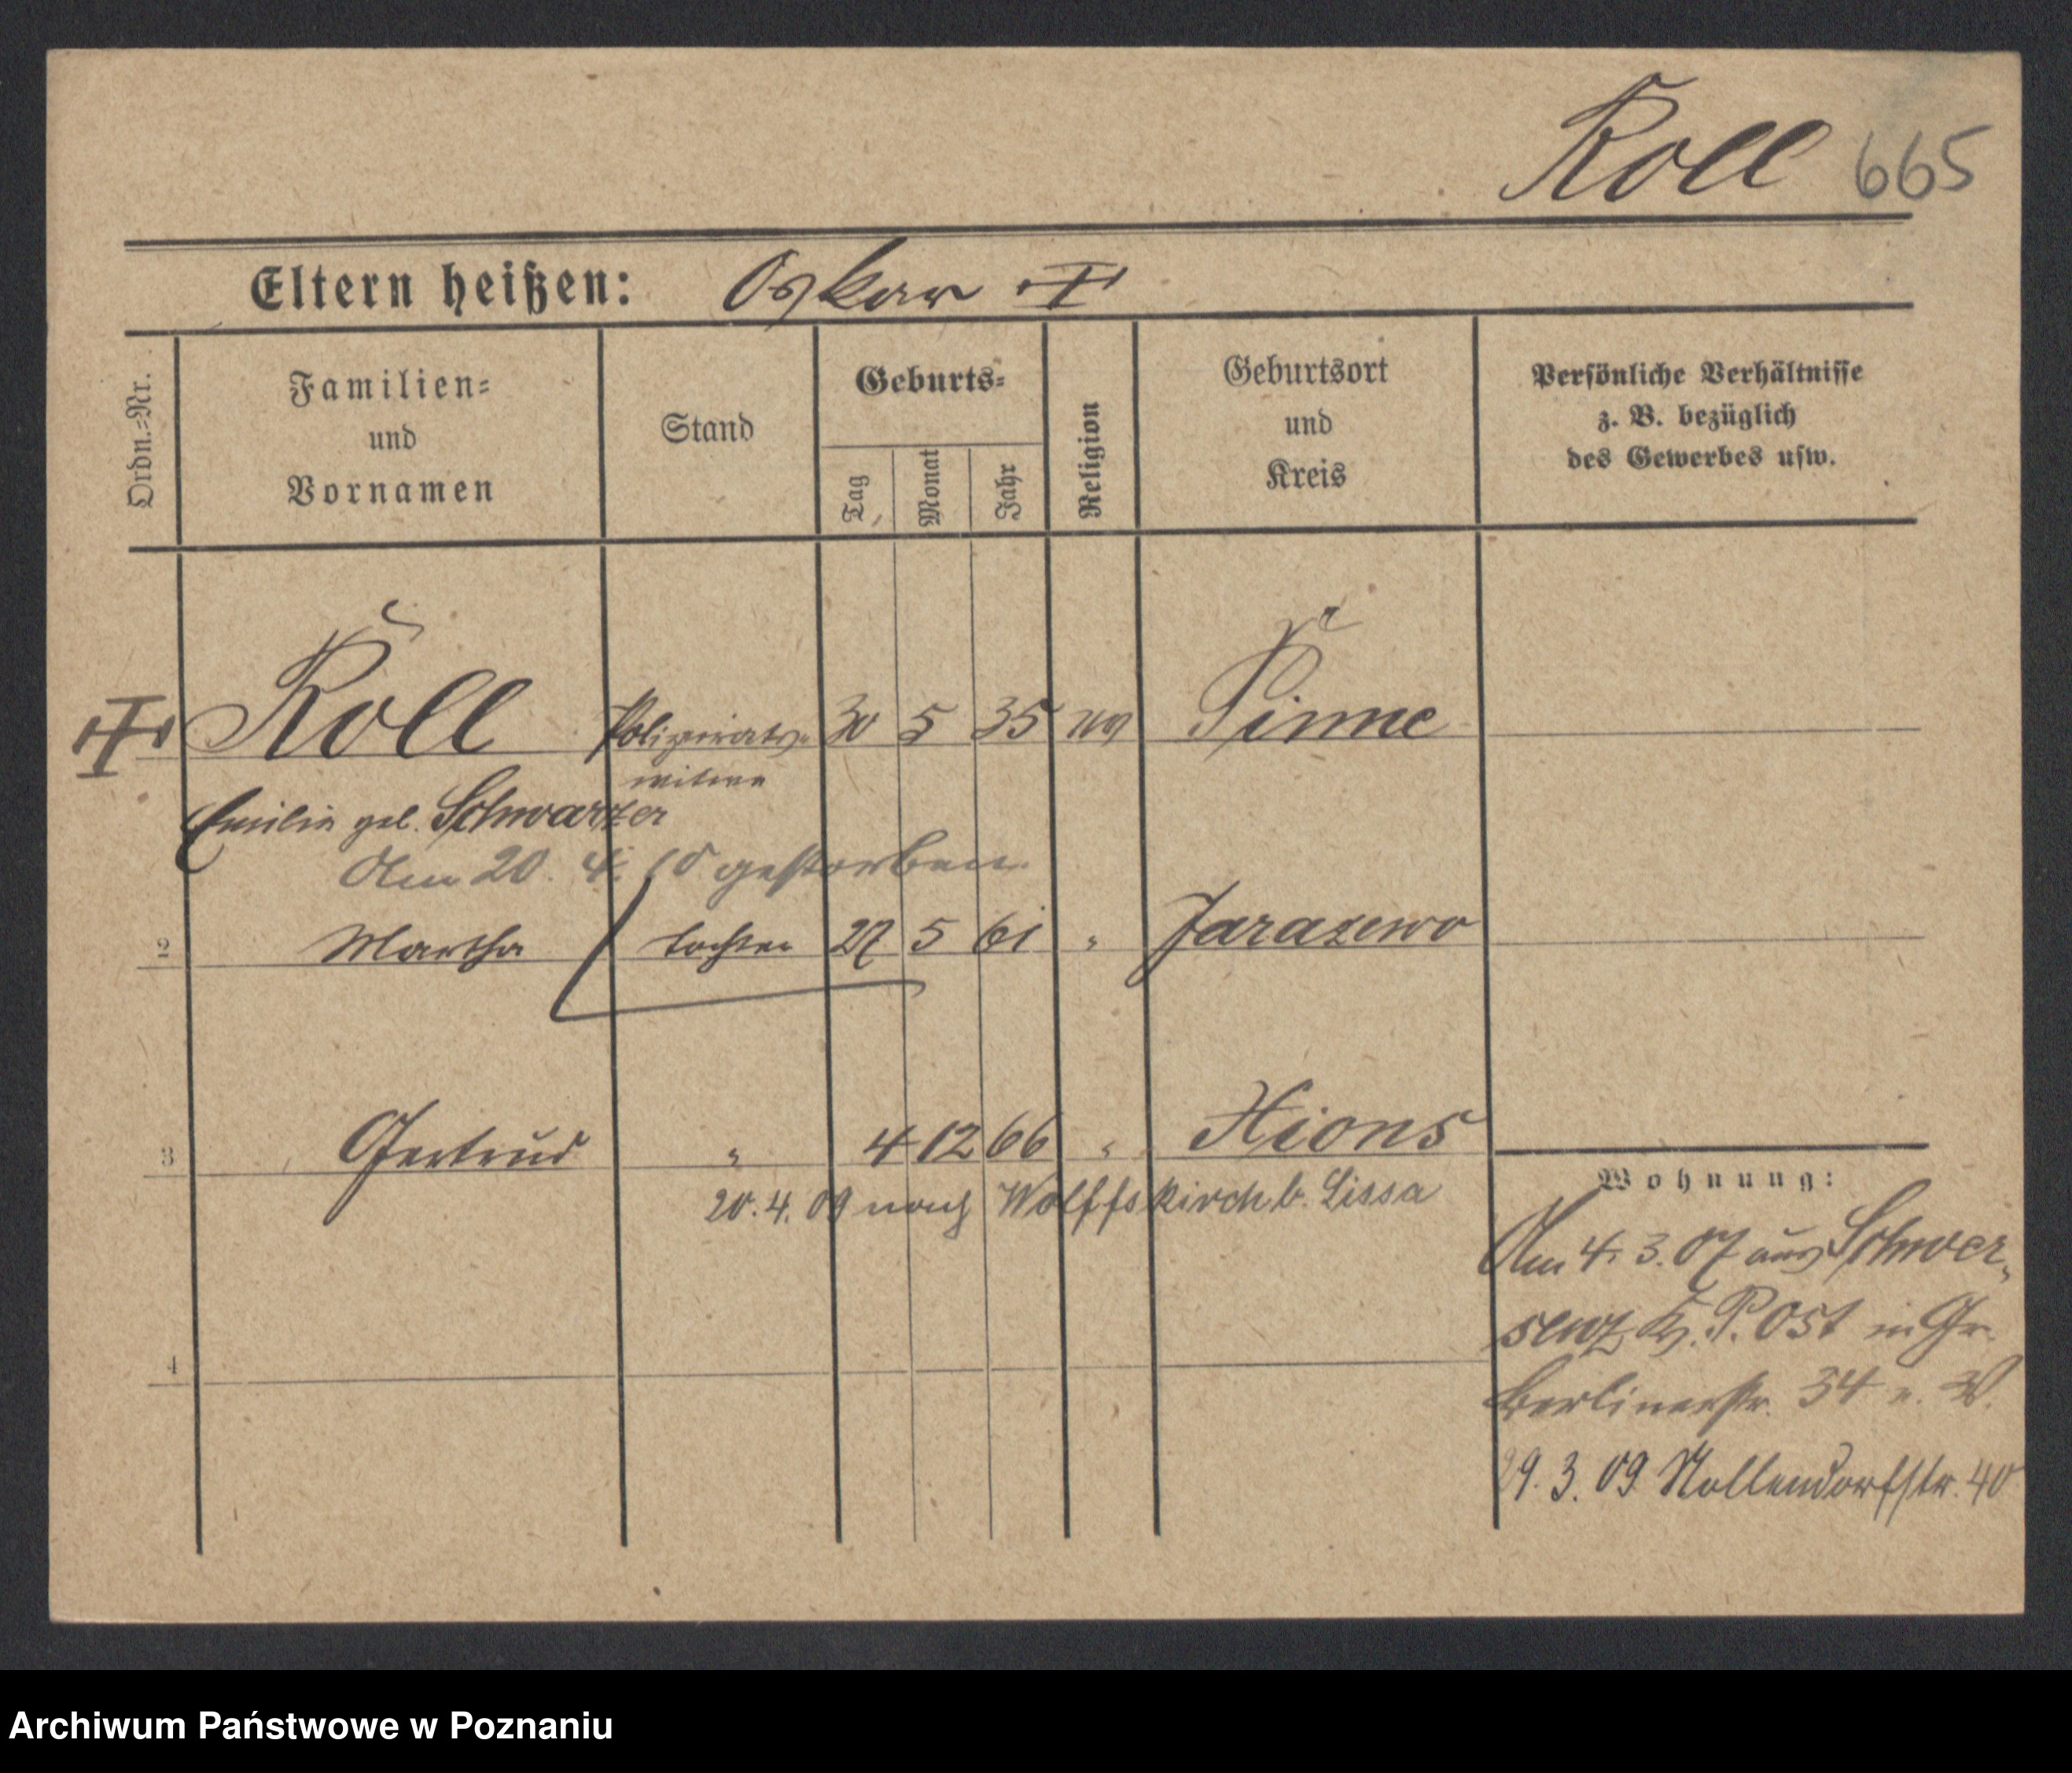 Roll 665
Eltern heißen: Oskar
Ordn.=Nr.
Familien=
und
Vornamen
Stand
Geburts=
Tag
Monat
Jahr
Religion
Geburtsort
und
Kreis
Persönliche Verhältnisse
z. B. bezüglich
des Gewerbes usw.
Roll Polizeirats= 30 5 35 ev Pinne
witwe
Emilie geb. Schwarzer
Am 20. 4. 10 gestorben.
2 Martha Tochter 27 5 61 " Jarazewo
3 Gertrud " 4 12 66 " Xions
20. 4. 09 nach Wolffskirch b. Lissa
4
Wohnung:
Am 4. 3. 07 aus Schwer=
senz, Kr. P. Ost in Gr.
Berlinerstr. 34
29. 3. 09 Nollendorfstr. 40
Archiwum Państwowe w Poznaniu